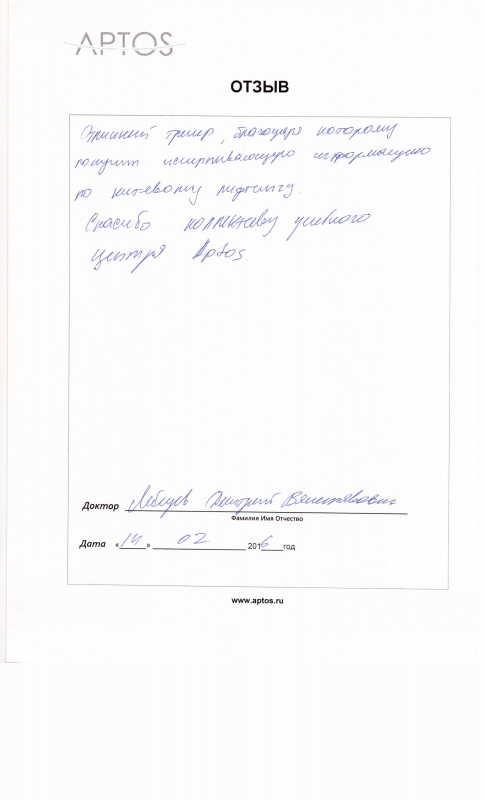 APTOS
ОТЗЫВ
Отличный тренер, благодаря которому
получил исчерпывающую информацию
по нитевому лифтингу.
Спасибо коллективу учебного
центра Aptos.
Доктор Дмитрий Вячеславович
Фамилия Имя Отчество
Дата «14» 02 2016 год
www.aptos.ru